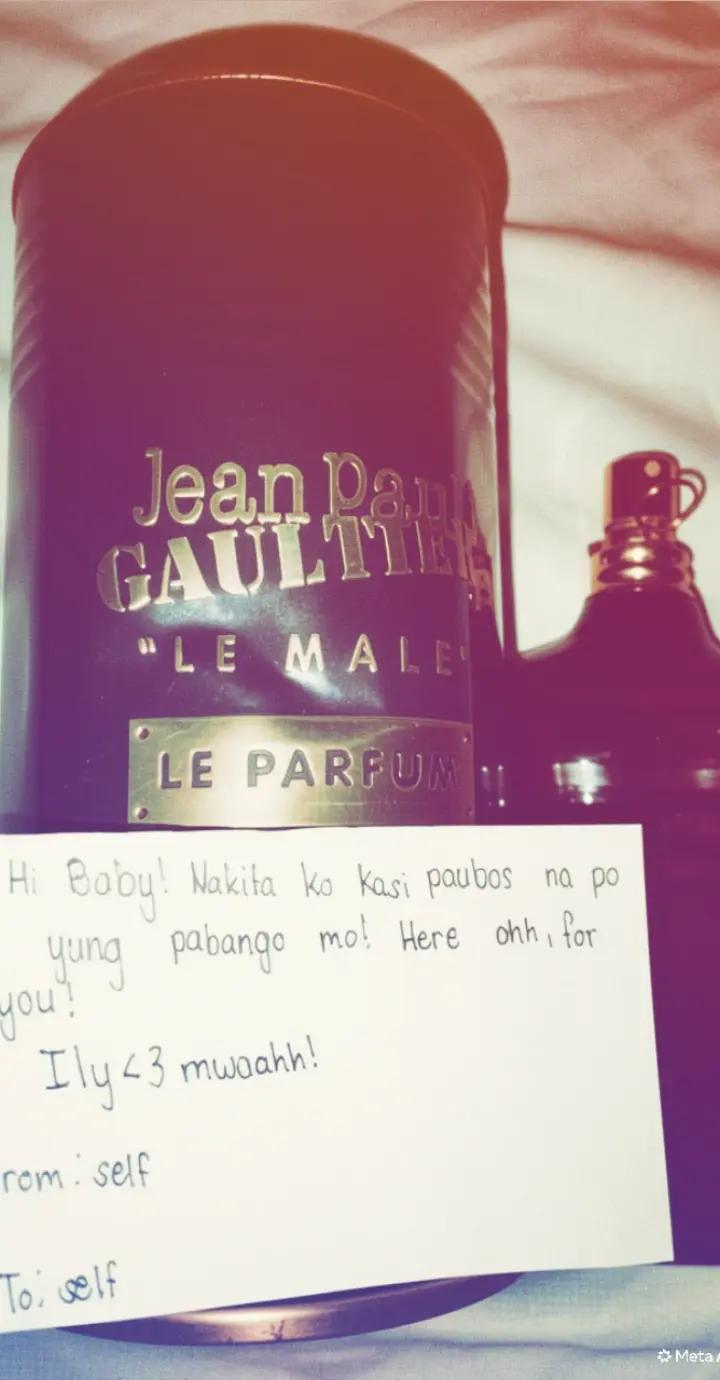 Jean Paul
GAULTIER
"LE MALE"
LE PARFUM
Hi Baby! Nakita ko kasi paubos na po
yung pabango mo! Here ohh, for
you!
Ily <3 mwaahh!
rom: self
To: self
Meta A